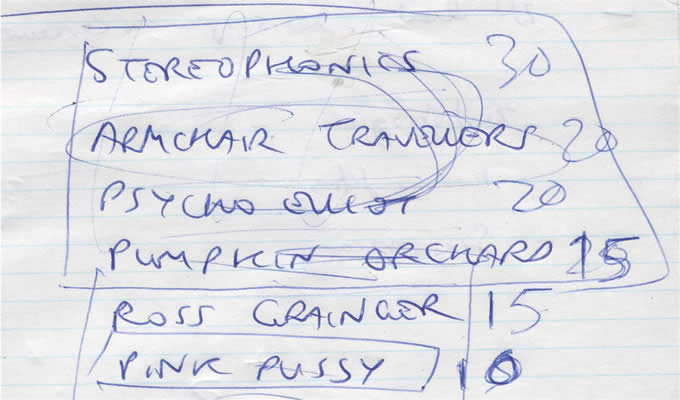 STEREOPHONICS 30
ARMCHAIR TRAVELLERS 20
PSYCHO 20
PUMPKIN ORCHARD 15
ROSS GRAINGER 15
PINK PUSSY 10